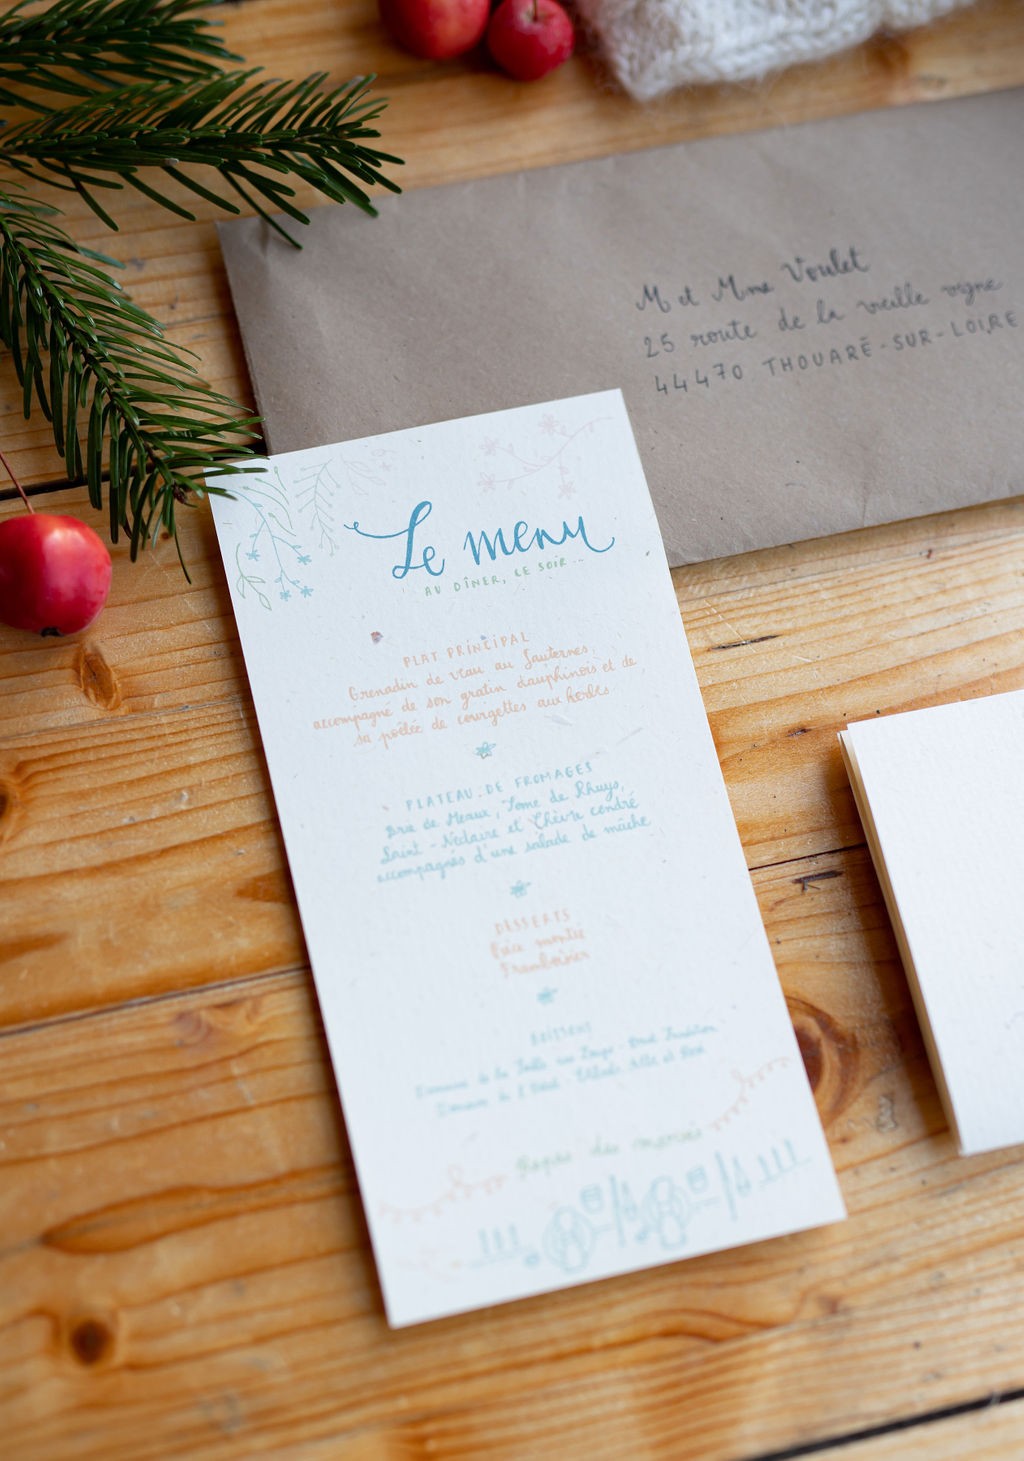 M et Mme Voulet
25 route de la vieille vigne
44470 THOUARÉ-SUR-LOIRE
Le menu
AU DÎNER, LE SOIR...
PLAT PRINCIPAL
Grenadin de veau au Sauternes,
accompagné de son gratin dauphinois et de
sa poêlée de courgettes aux herbes
PLATEAU DE FROMAGES
Brie de Meaux, Tome de Rhuys,
Saint-Nectaire et Chèvre cendré
accompagnés d'une salade de mâche
DESSERTS
Pièce montée
Framboisier
BOISSONS
Domaine de la
Domaine
Repas des mariés